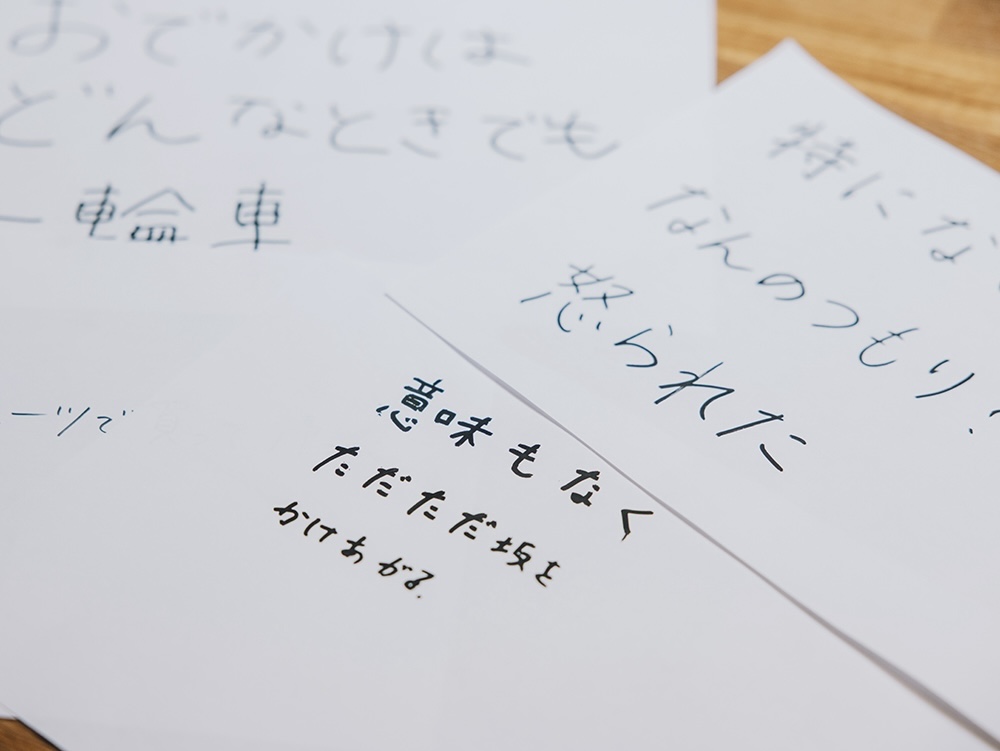 おでかけは
どんなときでも
一輪車
特にな
なんのつもり?
怒られた
ーツで
意味もなく
ただただ坂を
かけあがる.